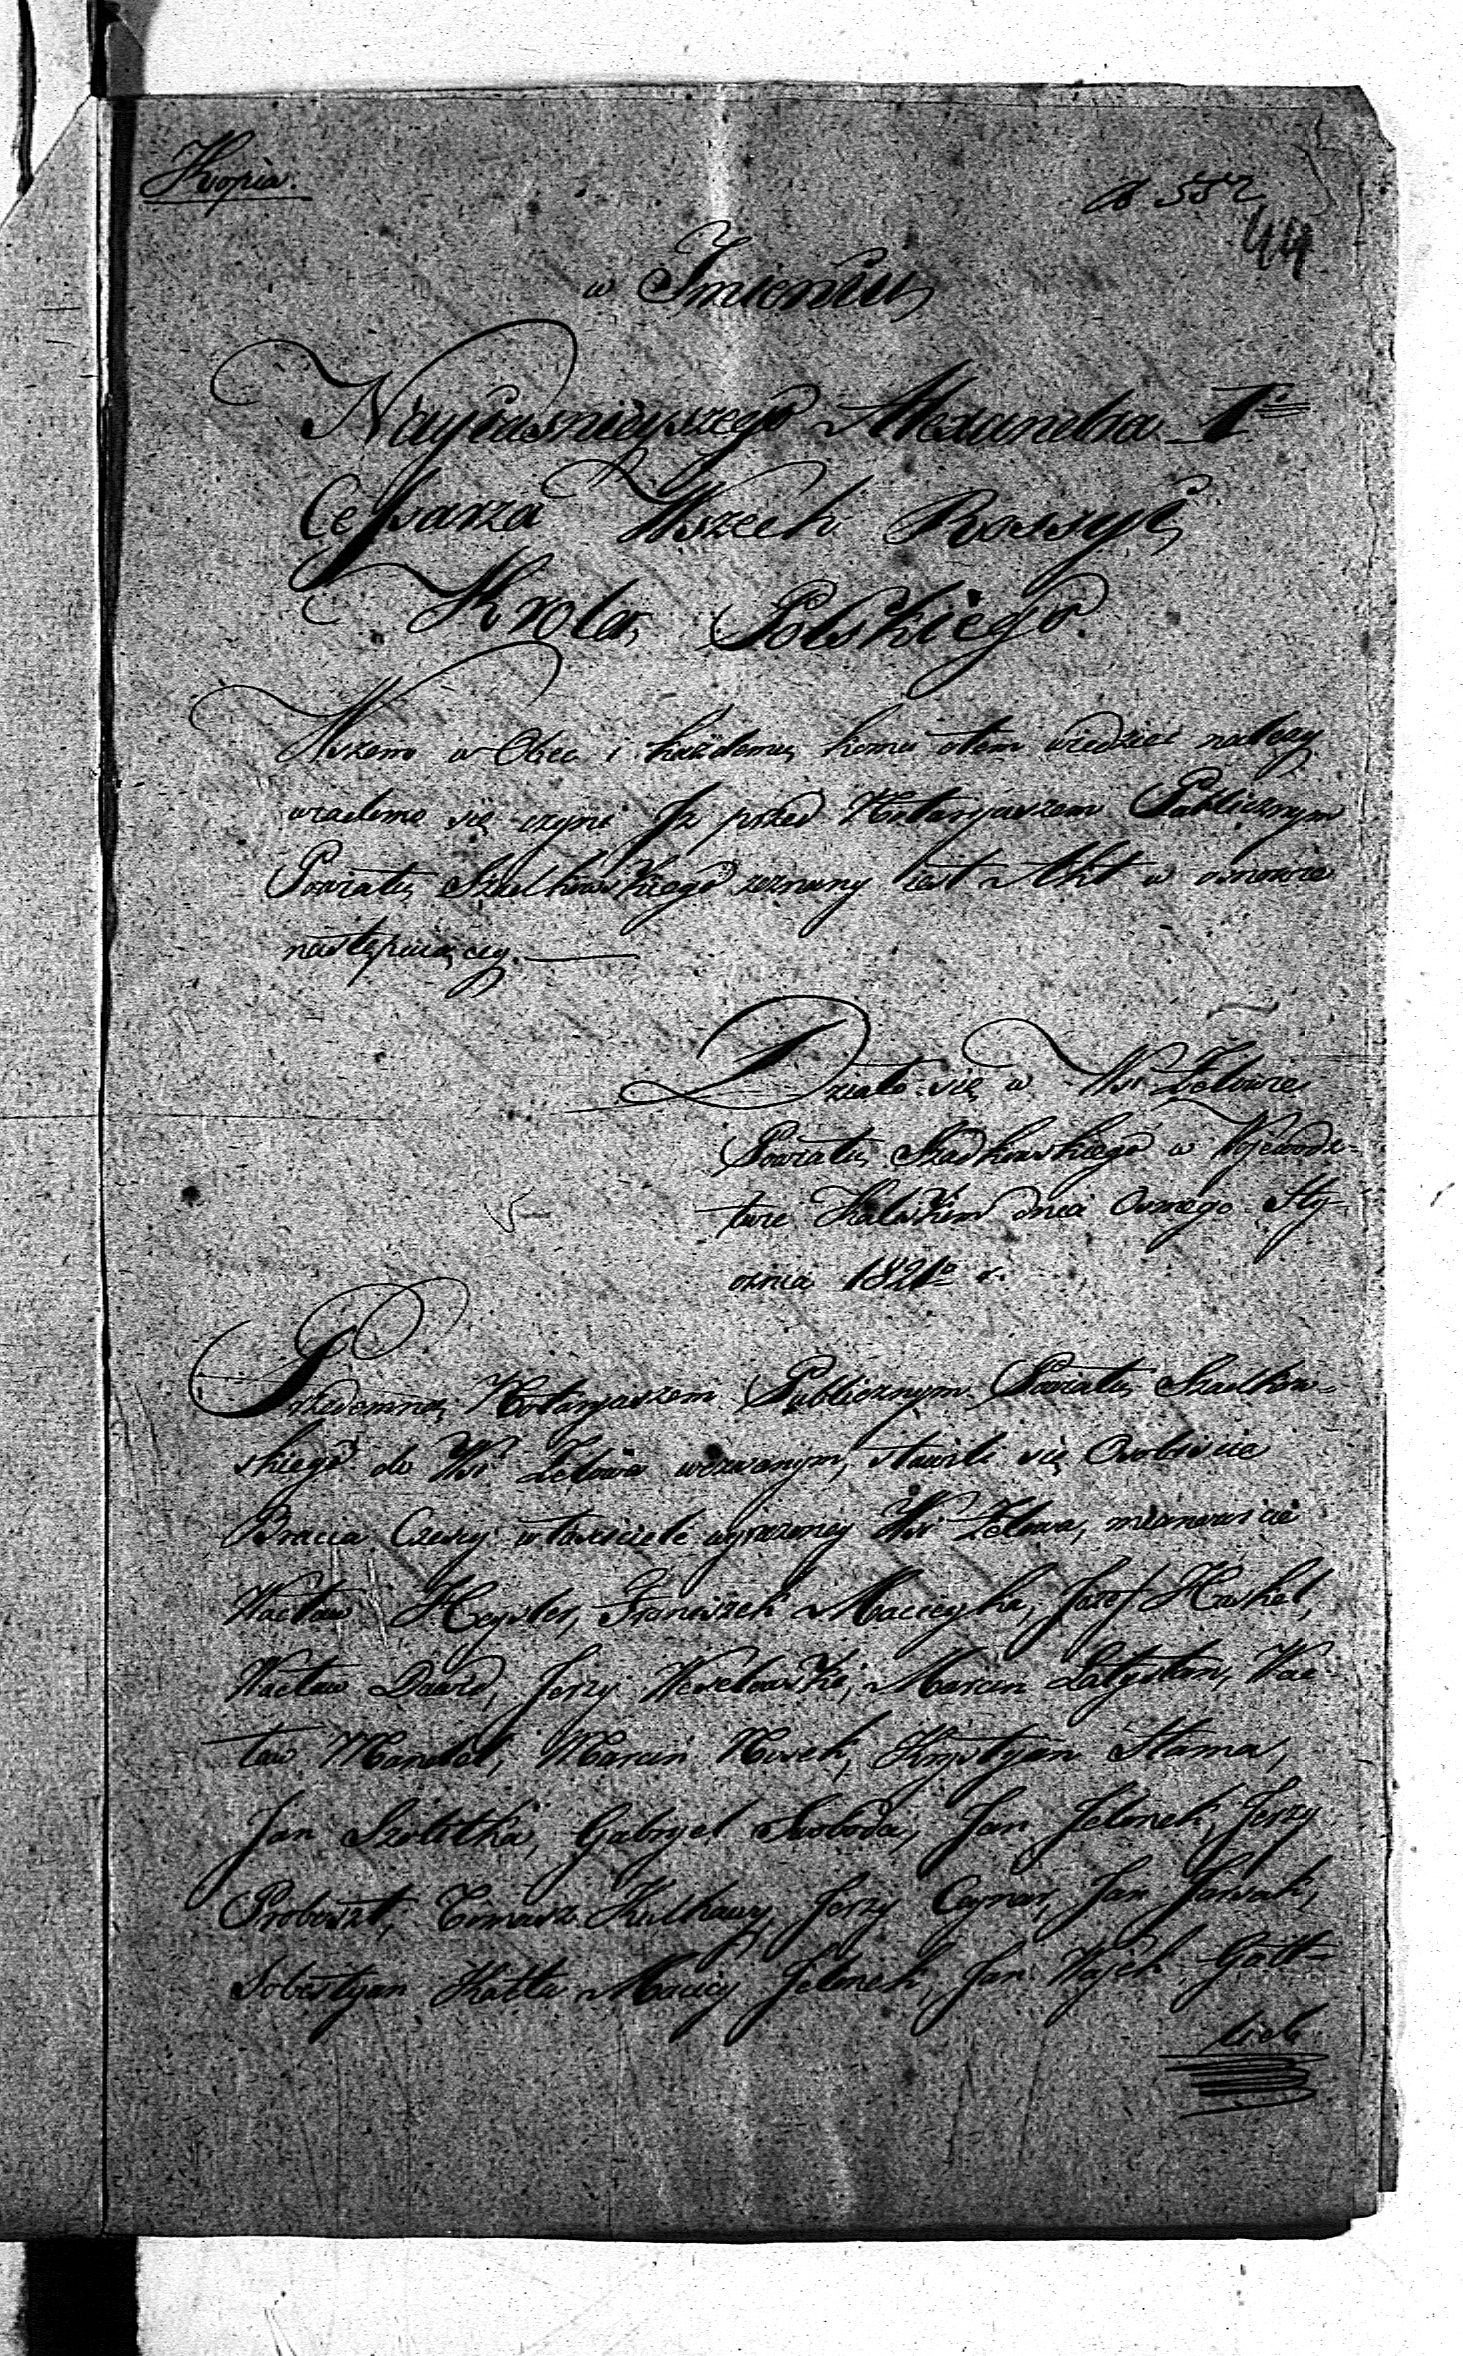 Kopia.
552
44
w Imieniu
Nayiasnieyszego Alexandra I
Cessarza Wszech Rossyi
Krola Polskiego.
Wszem w Obec i każdemu komu otem wiedzieć należy
wiadomo się czyni Iż przed Notaryuszem Publicznym
Powiatu Szadkowskiego zeznany iest Akt w osnowie
następuiącey.
Działo się w Wsi Zelowie
Powiatu Szadkowskiego w Wojewodz-
twie Kaliskim dnia Osmego Sty-
cznia 1821 r.
Przedemną Notaryuszem Publicznym Powiatu Szadkow-
skiego do Wsi Zelowa wezwanym, stawili się Osobiscie
Bracia Czescy własciciele wyrażoney Wsi Zelowa, mianowicie
Wacław Heysler, Franiszek Macieyka, Jozef Haskel,
Wacław Dawid, Jerzy Weselowski, Marcin Latystan, Wac
ław Mandel, Marcin Nosek, Krystyan Slama,
Jan Szolitka, Gabryel Swoboda, Jan Jelenek, Jerzy
Proboszt, Tomasz Kulhawy, Jerzy Cynar, Jan Jarsak,
Sobestyan Katla Maciey Jelenek, Jan Wajek Gott-
lieb